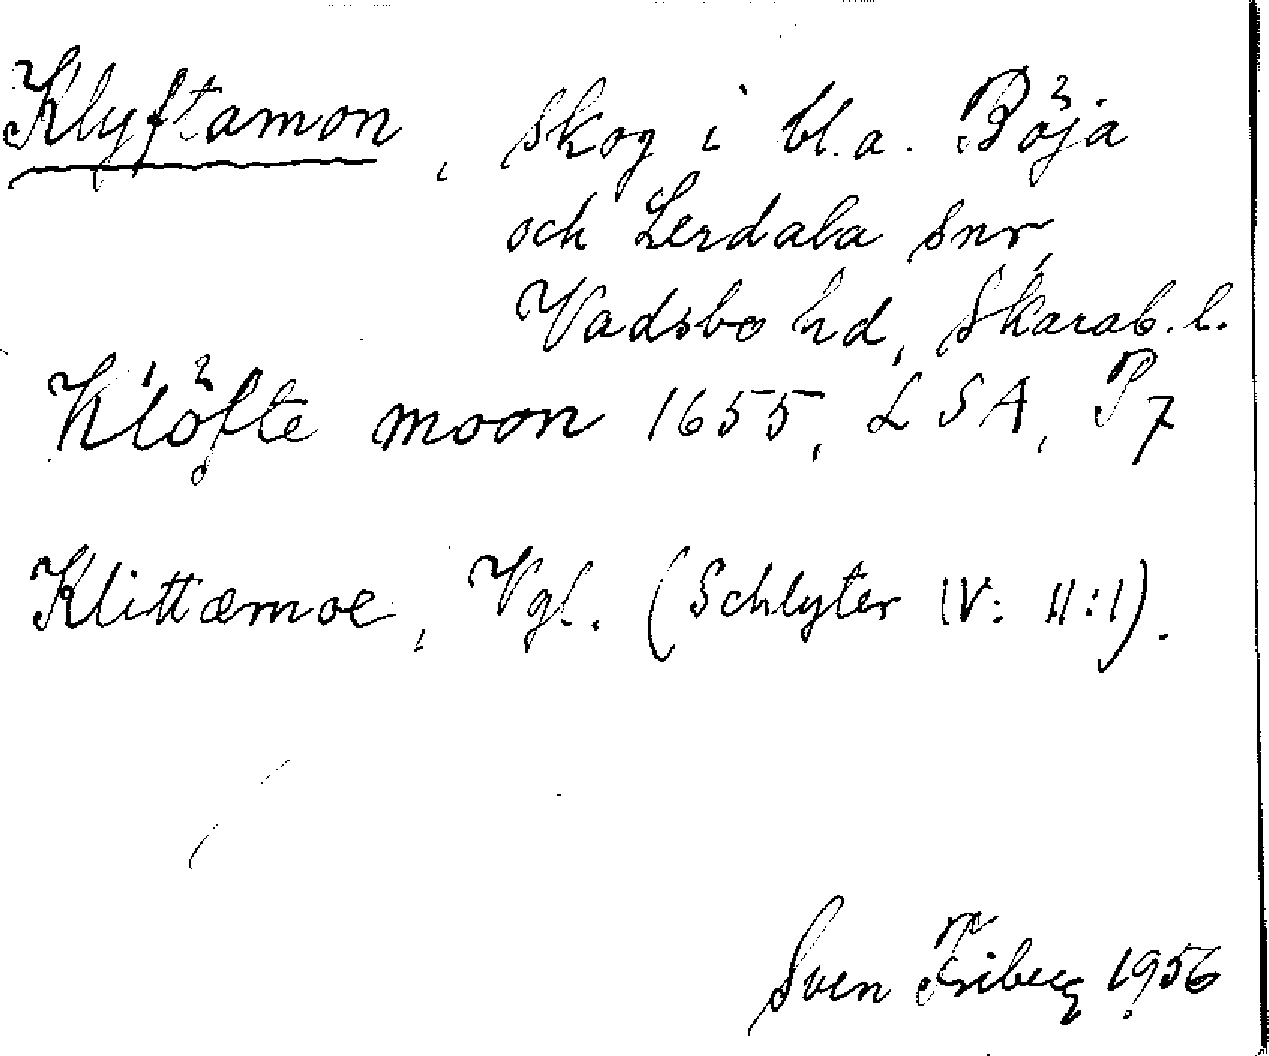 Klyftamon, skog i bl.a. Böja
och Lerdala snr,
Vadsbo hd, Skarab. l.
Klöfte moon 1655, LSA, P7
Klittæmoe, Vgl. (Schlyter IV: II:1).
Sven Friberg 1956